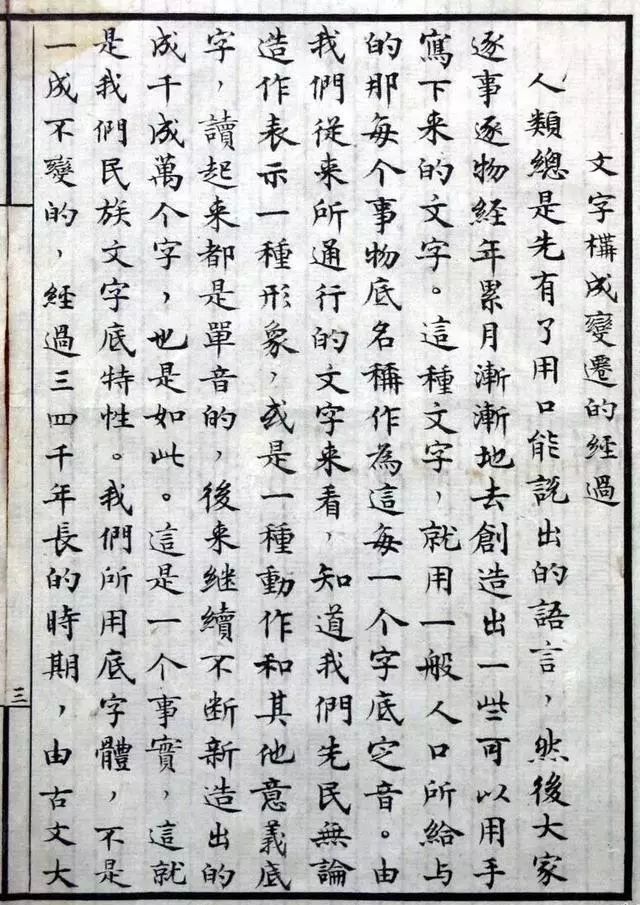 文字構成變遷的經過
人類總是先有了用口能說出的語言，然後大家
逐事逐物經年累月漸漸地去創造出一些可以用手
寫下来的文字。這種文字，就用一般人口所給与
的那每个事物底名稱作為這每一个字底定音。由
我們從来所通行的文字来看，知道我們先民無論
造作表示一種形象，或是一種動作和其他意義底
字，讀起来都是單音的，後来继續不断新造出的
成千成萬个字，也是如此。這是一个事實，這就
是我們民族文字底特性。我們所用底字體，不是
一成不變的，經過三四千年長的時期，由古文大
三